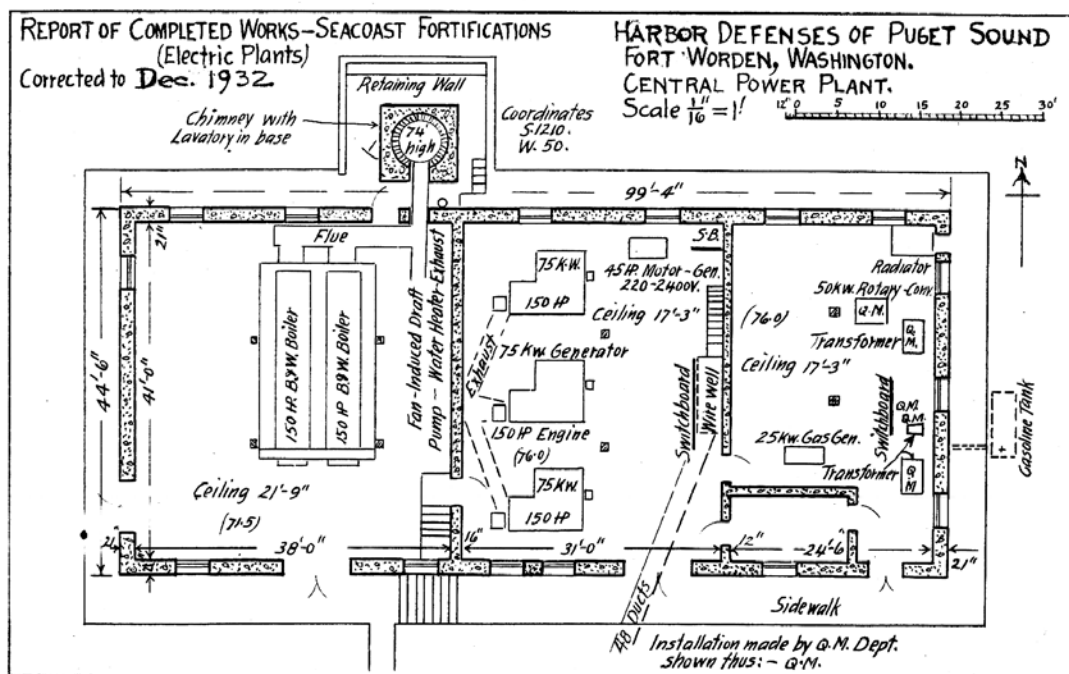 REPORT OF COMPLETED WORKS–SEACOAST FORTIFICATIONS
(Electric Plants)
Corrected to Dec. 1932
HARBOR DEFENSES OF PUGET SOUND
FORT WORDEN, WASHINGTON.
CENTRAL POWER PLANT.
Scale 1/16" = 1'
12' 0 5 10 15 20 25 30'
Retaining Wall
Chimney with
Lavatory in base
74'
high
Coordinates
S.1210.
W. 50.
N
99'-4"
44'-6"
41'-0"
21"
Flue
150 HP. B&W. Boiler
150 HP B&W. Boiler
Fan-Induced Draft
Pump – Water Heater-Exhaust
Ceiling 21'-9"
(71.5)
75 K.W.
150 HP
Exhaust
75 Kw. Generator
150 HP Engine
(76.0)
75 KW.
150 HP
45 HP. Motor-Gen.
220-2400V.
S.B.
Ceiling 17'-3"
Switchboard
Wire well
(76.0)
Ceiling 17'-3"
Radiator
50 Kw. Rotary-Conv.
Q.M.
Transformer
Q.M.
Switchboard
Q.M.
Q.M.
25 Kw. Gas Gen.
Transformer
Q.M.
Gasoline Tank
38'-0"
16"
31'-0"
12"
24'-6"
21"
48 Ducts
Sidewalk
Installation made by Q.M. Dept.
shown thus:– Q.M.